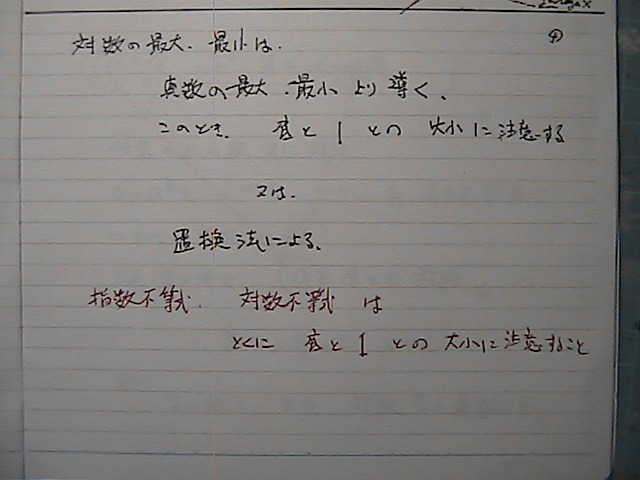 対数の最大、最小は、
真数の最大、最小より導く、
このとき、底と1との大小に注意する
又は、
置換法による。
指数不等式、対数不等式は
とくに底と1との大小に注意すること